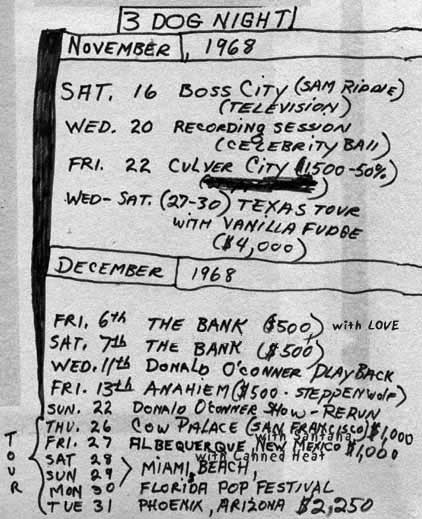 3 DOG NIGHT
NOVEMBER, 1968
SAT. 16 BOSS CITY (SAM RIDDLE)
(TELEVISION)
WED. 20 RECORDING SESSION
(CELEBRITY BALL)
FRI. 22 CULVER CITY $1,500-50%)
WED-SAT. (27-30) TEXAS TOUR
WITH VANILLA FUDGE
($4,000)
DECEMBER 1968
FRI. 6th THE BANK ($500) with LOVE
SAT. 7th THE BANK ($500)
WED. 11th DONALD O'CONNER PLAYBACK
FRI. 13th ANAHIEM ($500 - STEPPENWOLF)
SUN. 22 DONALD O'CONNER SHOW - RERUN
THU. 26 COW PALACE (SAN FRANCISCO) $1,000
with Santana
FRI. 27 ALBEQUERQUE, NEW MEXICO $1,000
with Canned Heat
SAT 28
SUN 29 > MIAMI BEACH,
MON 30 FLORIDA POP FESTIVAL
TUE 31 PHOENIX, ARIZONA $2,250
TOUR